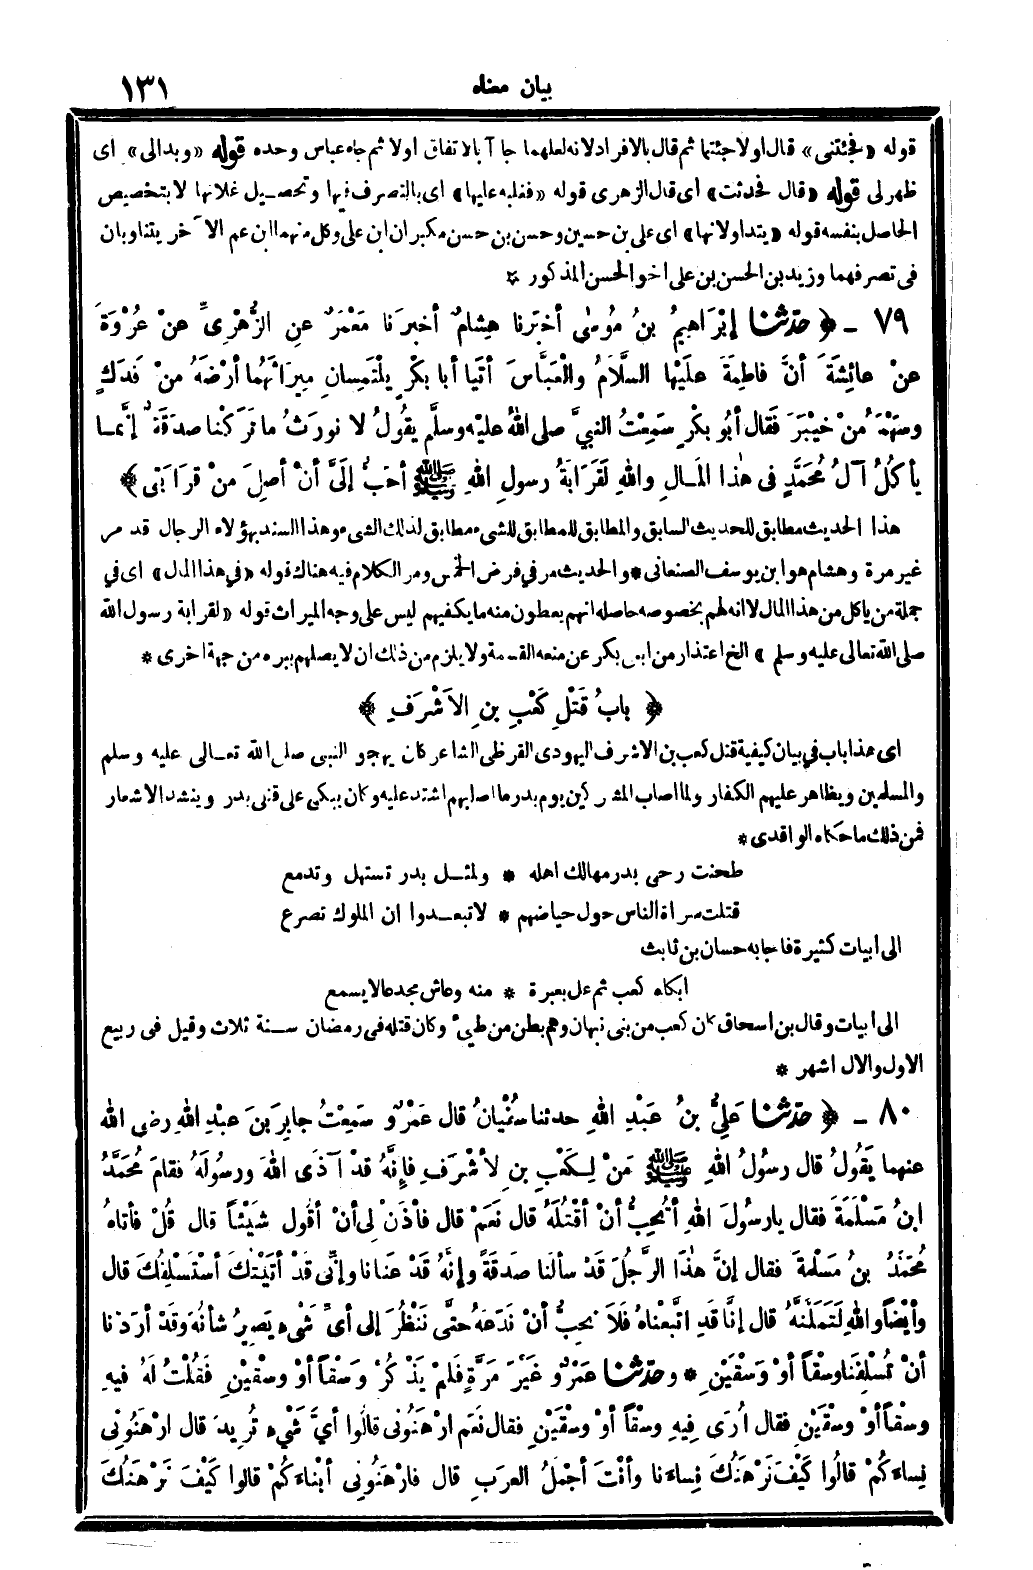 بيان معناه ١٣١
قوله «فجئتنى» قال اولا جئتما ثم قال بالافراد لانه لعلهما جاآ بالاتفاق اولا ثم جاء عباس وحده قوله «وبدالى» اى
ظهر لى قوله «قال فحدثت» اى قال الزهرى قوله «فغلبه عليها» اى بالتصرف فيها وتحصيل غلاتها لا بتخصيص
الحاصل بنفسه قوله «يتداولانها» اى على بن حسين وحسن بن حسن مكبران ابن على وكل منهما ابن عم الآخر يتناوبان
فى تصرفهما وزيد بن الحسن بن على اخو الحسن المذكور *
٧٩ - ﴿ حَدَّثَنَا إِبْرَاهِيمُ بنُ مُوسَى أخبَرنا هِشَامٌ أخبرَنا مَعْمَرٌ عنِ الزُّهْرِىِّ عنْ عُرْوَةَ
عنْ عائِشَةَ أنَّ فاطِمَةَ عَلَيْها السَّلاَمُ والْعَبَّاسَ أتَيا أبا بكْرٍ يلْتَمِسانِ مِيرَاثَهُما أرْضَهُ منْ فَدَكٍ
وسَهْمَهُ منْ خَيْبَرَ فَقال أبُو بكْرٍ سَمِعْتُ النبيَّ صلى اللهُ عليْه وسلَّم يقُولُ لا نورَثُ ما تَرَكْنا صدَقَةٌ إنَّمـا
يأكُلُ آلُ مُحَمَّدٍ فى هٰذا المَـالِ واللهِ لَقَرَابَةُ رسولِ اللهِ ﷺ أحَبُّ إلَىَّ أنْ أصِلَ منْ قرَابَتى ﴾
هذا الحديث مطابق للحديث السابق والمطابق للمطابق للشىء مطابق لذلك الشىء وهذا السند بهؤلاء الرجال قد مر
غير مرة وهشام هو ابن يوسف الصنعانى * والحديث مر في فرض الخمس ومر الكلام فيه هناك قوله «في هذا المال» اى في
جملة من ياكل من هذا المال لا انه لهم بخصوصه حاصله انهم يعطون منه ما يكفيهم ليس على وجه الميراث قوله «لقرابة رسول الله
صلى الله تعالى عليه وسلم» الخ اعتذار من ابى بكر عن منعه القسمة ولا يلزم من ذلك ان لا يصلهم ببره من جهة اخرى *
﴿ بابُ قَتْلِ كَعْبِ بنِ الأشْرَفِ ﴾
اى هذا باب في بيان كيفية قتل كعب بن الاشرف اليهودى القرظى الشاعر كان يهجو النبى صلى الله تعـالى عليه وسلم
والمسلمين ويظاهر عليهم الكفار ولما اصاب المشركين يوم بدر ما اصابهم اشتد عليه وكان يبكى على قتلى بدر وينشد الاشعار
فمن ذلك ما حكاه الواقدى *
طحنت رحى بدر مهالك اهله * ولمثـل بدر تستهل وتدمع
قتلت سراة الناس حول حياضهم * لا تبعـدوا ان الملوك تصرع
الى ابيات كثيرة فاجابه حسان بن ثابت
ابكاه كعب ثم عل بعبرة * منه وعاش مجدعا لا يسمع
الى ابيات وقال بن اسحاق كان كعب من بنى نبهان وهم بطن من طىء وكان قتله فى رمضان سـنة ثلاث وقيل فى ربيع
الاول والال اشهر *
٨٠ - ﴿ حَدَّثَنَا عَلِىُّ بنُ عَبْدِ اللهِ حدثنا سُفْيانُ قال عَمْرٌو سَمِعْتُ جابِرَ بنَ عبْدِ اللهِ رضى الله
عنهما يَقُولُ قال رسُولُ اللهِ ﷺ مَنْ لِـكَعْبِ بنِ لأشْرَفِ فإنَّهُ قدْ آذَى اللهَ ورسُولَهُ فقامَ مُحَمَّدُ
ابنُ مَسْلَمَةَ فقال يارسُولَ اللهِ أتُحِبُّ أنْ أقْتُلَهُ قال نَعَمْ قال فأذَنْ لِى أنْ أقُول شَيْئاً قال قُلْ فأتاهُ
مُحَمَّدُ بنُ مَسْلمةَ فقال إنَّ هٰذَا الرَّجُلَ قدْ سألَنا صدَقَةً وإنَّهُ قَدْ عَنانا وإنِّى قدْ أتَيْتُكَ أسْتَسْلِفُكَ قال
وأيْضاً واللهِ لَتَمَلُّنَّهُ قال إنَّا قَدِ اتَّبعْناهُ فَلاَ نحِبُّ أنْ نَدَعَهُ حتَّى نَنْظُرَ إلى أىِّ شَىْءٍ يَصِيرُ شأنُهُ وقَدْ أرَدْنا
أنْ تُسْلِفَنا وسْقاً أوْ وَسْقَيْنِ * وحَدَّثَنَا عَمْرٌو غَيْرَ مَرَّةٍ فَلَمْ يَذْكُرْ وَسْقاً أوْ وسْقَينِ فَقُلْتُ لهُ فيهِ
وسْقاً أوْ وسْقَيْنِ فقال أُرَى فِيهِ وسْقاً أوْ وسْقَيْنِ فقال نَعَمِ ارْهَنُونى قالُوا أىَّ شَىْءٍ تُرِيدُ قال ارْهَنُونِى
نِساءَكُمْ قالُوا كَيْفَ نَرْهَنُكَ نِساءَنا وأنْتَ أجْمَلُ العرَبِ قال فارْهَنُونِى أبْناءَكُمْ قالوا كَيْفَ نَرْهَنُكَ